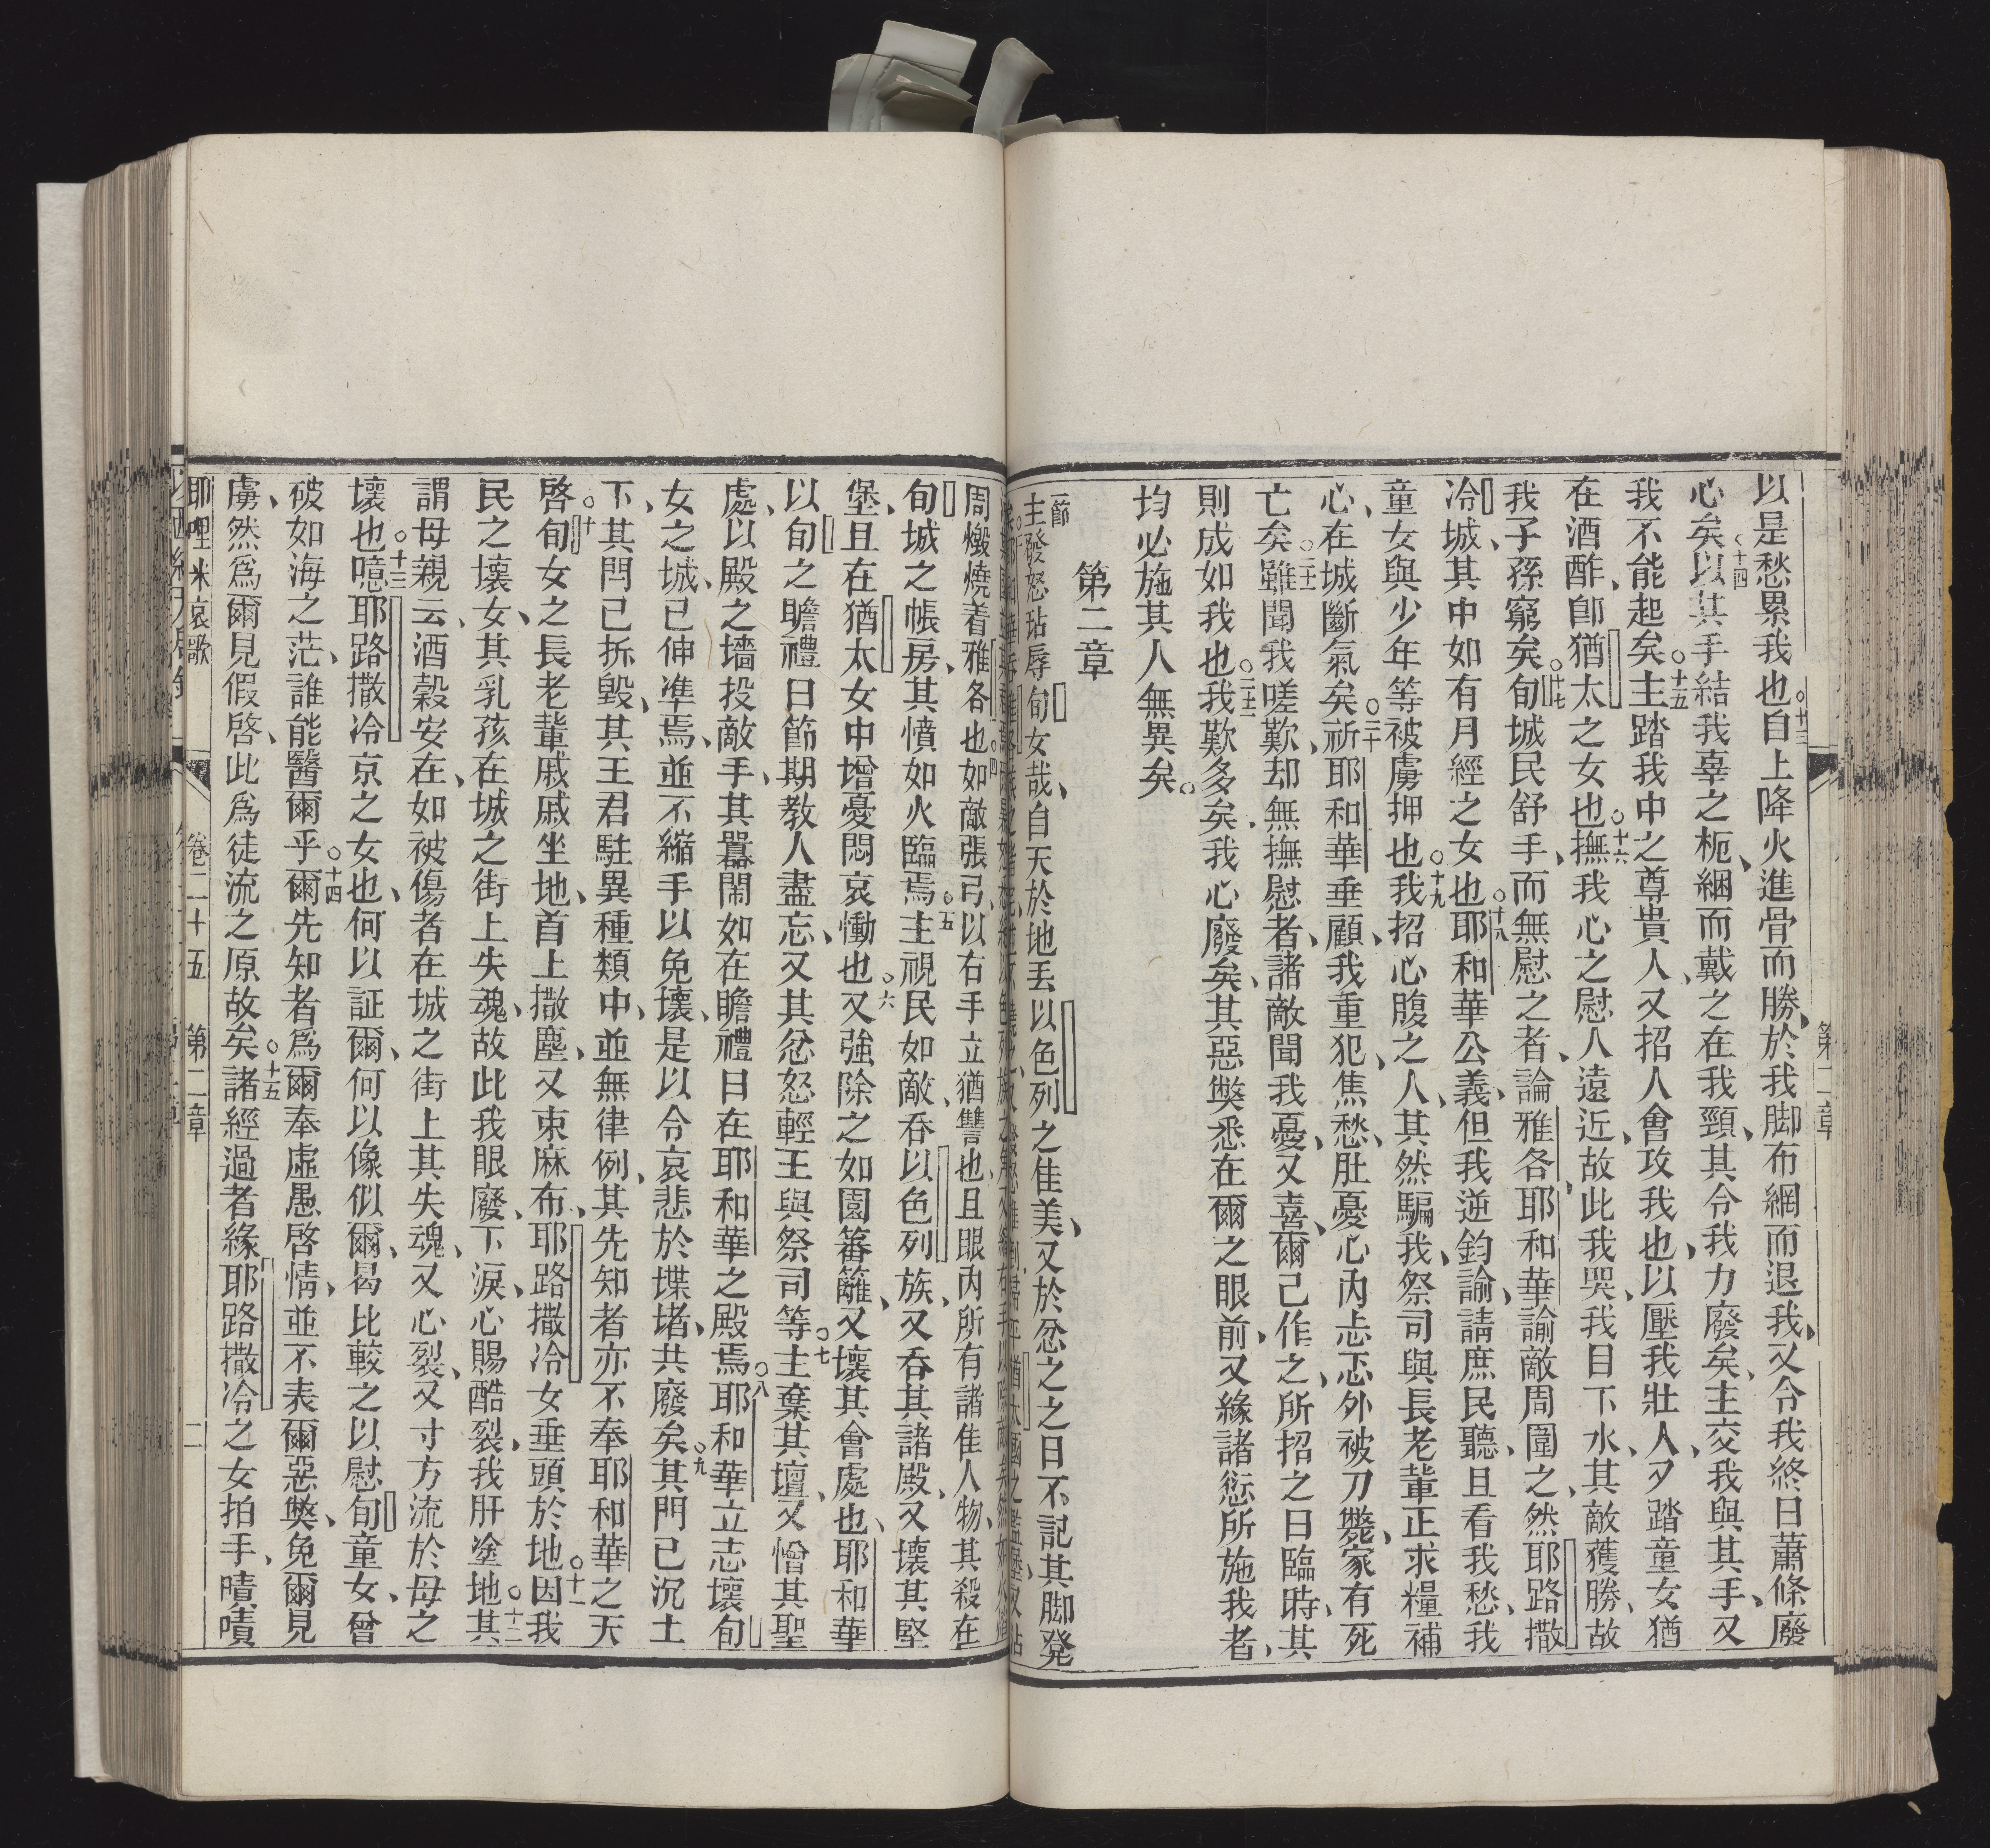 以是愁累我也○十三自上降火進骨而勝、於我脚布網而退我、又令我終日蕭條廢
心矣○十四以其手結我辜之枙、綑而戴之在我頸、其令我力廢矣、主交我與其手、又
我不能起矣○十五主踏我中之尊貴人、又招人會攻我也、以壓我壯人、夕踏童女猶
在酒酢、卽猶太之女也○十六撫我心之慰人遠近、故此我哭、我目下水、其敵獲勝、故
我子孫窮矣○十七旬城民舒手、而無慰之者、論雅各、耶和華諭敵周圍之、然耶路撒
冷城、其中如有月經之女也○十八耶和華公義、但我逆鈞諭、請庶民聽、且看我愁、我
童女與少年等被虜押也○十九我招心腹之人、其然騙我、祭司與長老輩正求糧補
心、在城斷氣矣○二十祈耶和華垂顧、我重犯、焦愁、肚憂心內忐忑外被刀斃、家有死
亡矣○二十一雖聞我嗟歎、却無撫慰者、諸敵聞我憂、又喜、爾己作之、所招之日臨時、其
則成如我也○二十二我歎多矣、我心廢矣、其惡獘悉在爾之眼前、又緣諸愆所施我者、
均必施其人無異矣。
第二章
第二章
節
主發怒玷辱旬女哉、自天於地丟以色列之佳美、又於忿之之日不記其脚凳
周燬燒着雅各也○四如敵張弓、以右手立猶讐也、且眼內所有諸隹人物、其殺在
旬城之帳房、其憤如火臨焉○五主視民如敵、吞以色列族、又呑其諸殿、又壞其堅
堡、且在猶太女中增憂悶哀慟也○六又強除之如園蕃籬、又壞其會處也、耶和華
以旬之瞻禮日節期教人盡忘、又其忿怒輕王與祭司等○七主棄其壇、又憎其聖
處、以殿之墻投敵手、其囂鬧如在瞻禮日在耶和華之殿焉○八耶和華立志壞旬
女之城、己伸準焉、並不縮手以免壞、是以令哀悲於堞堵、共廢矣○九其門已沉土
下、其閂己拆毀、其王君駐異種類中、並無律例、其先知者亦不奉耶和華之天
啓○十旬女之長老輩戚戚坐地、首上撒塵、又束麻布、耶路撒冷女垂頭於地○十一因我
民之壞女、其乳孩在城之街上失魂、故此我眼廢、下淚、心賜酷裂、我肝塗地○十二其
謂母親云、酒穀安在、如被傷者在城之街上其失魂、又心裂、又寸方流於母之
壞也○十三噫耶路撒冷京之女也、何以証爾、何以像似爾、曷比較之以慰旬童女、曾
破如海之茫、誰能醫爾乎○十四爾先知者爲爾奉虛愚啓情、並不表爾惡獘、免爾見
虜、然爲爾見假啓、此爲徒流之原故矣○十五諸經過者緣耶路撒冷之女拍手、嘖嘖
耶哩米哀歌　卷二十五　第二章　二